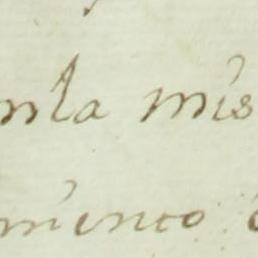 nla mis
miento